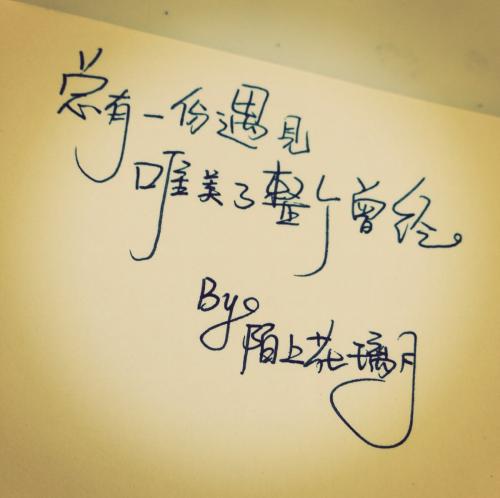 总有一份遇见
唯美了整个曾经。
By。
陌上花璃月